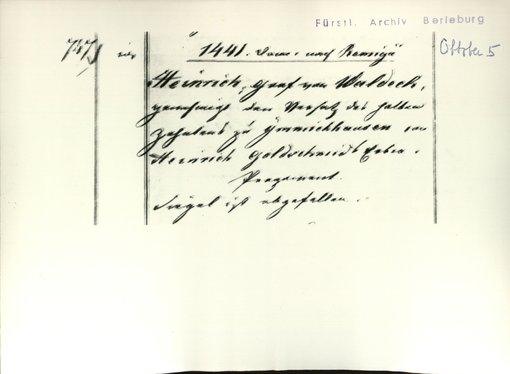 Fürstl. Archiv Berleburg
747)
1441. Donn. nach Remigii
Oktober 5
Heinrich, Graf von Waldeck,
genehmigt den Versatz des halben
Zehntens zu Immickhausen an
Heinrich Goldschmidts Erben.
Pergament.
Siegel ist abgefallen.